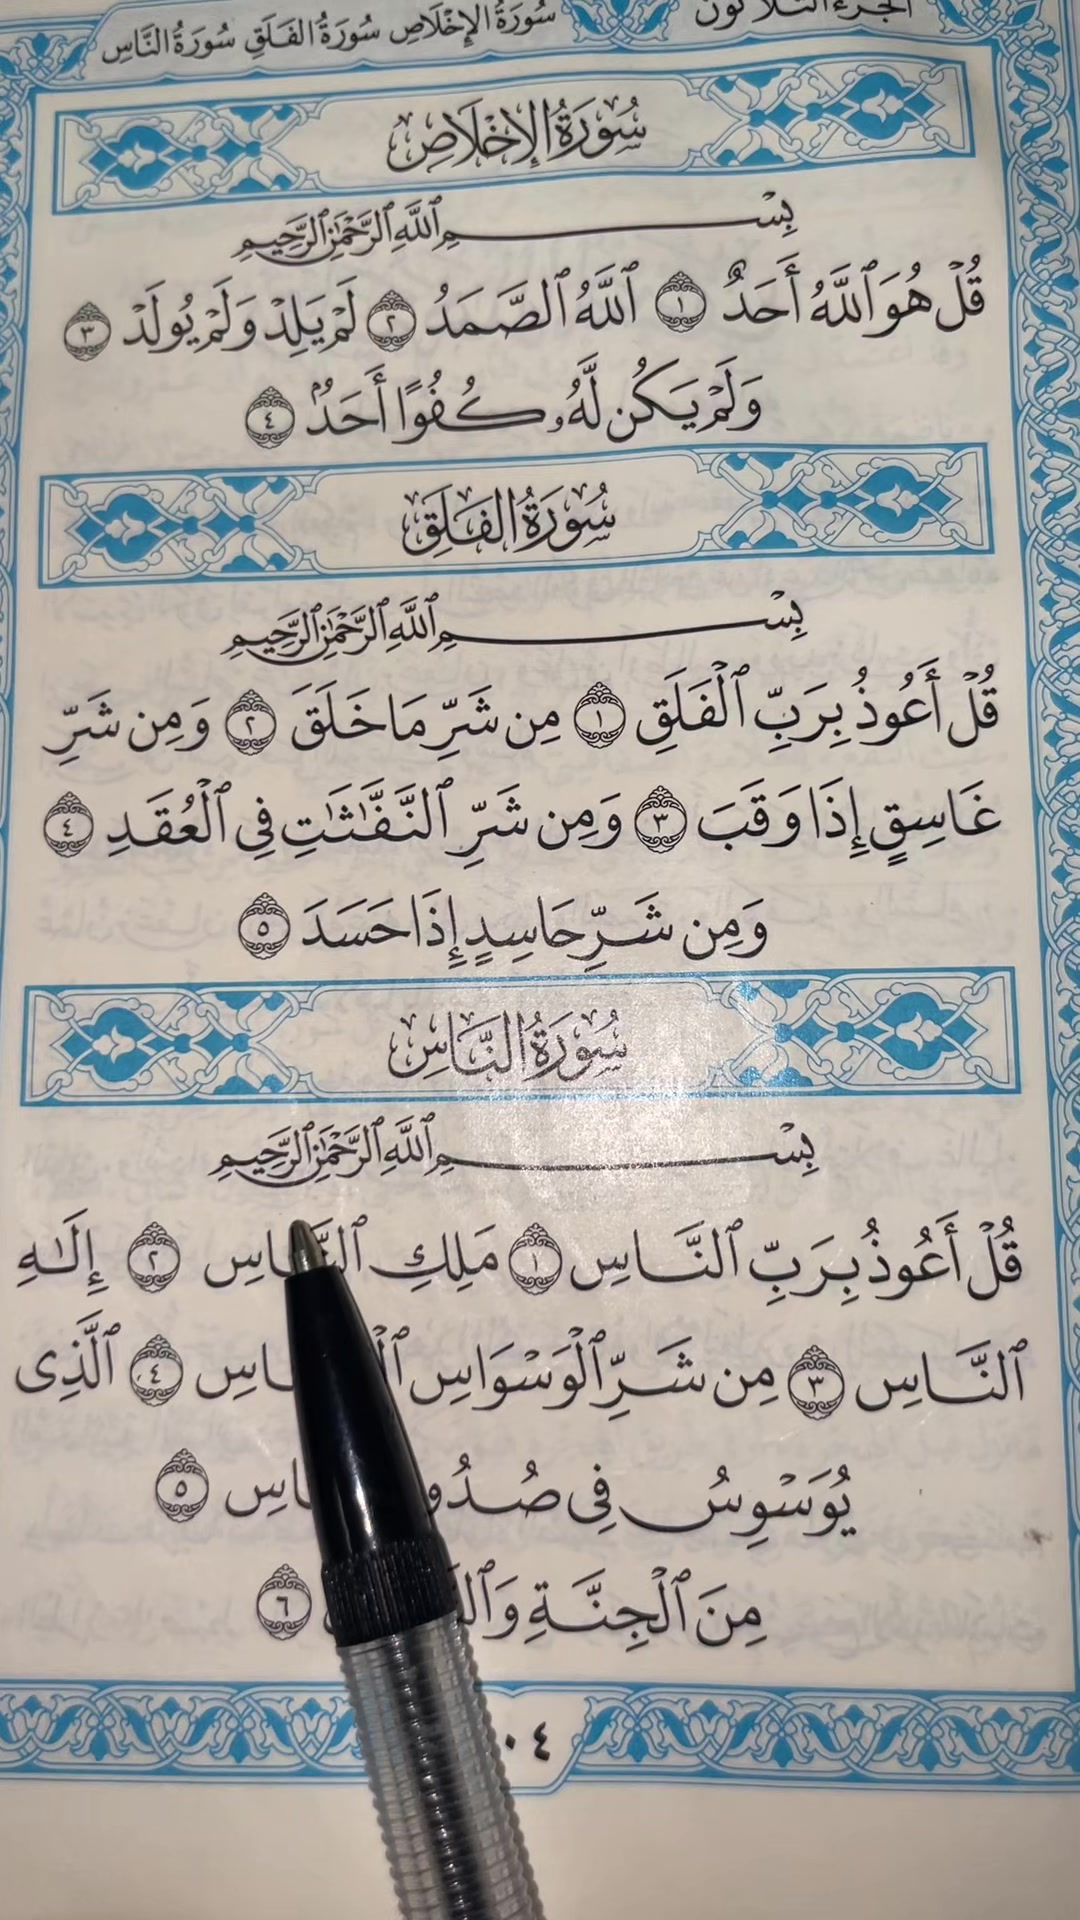 سُورَةُ الإِخْلَاصِ سُورَةُ الفَلَقِ سُورَةُ النَّاسِ
سُورَةُ الإِخْلَاصِ
بِسْمِ ٱللَّهِ ٱلرَّحْمَٰنِ ٱلرَّحِيمِ
قُلْ هُوَ ٱللَّهُ أَحَدٌ ١ ٱللَّهُ ٱلصَّمَدُ ٢ لَمْ يَلِدْ وَلَمْ يُولَدْ ٣
وَلَمْ يَكُن لَّهُۥ كُفُوًا أَحَدٌۢ ٤
سُورَةُ الفَلَقِ
بِسْمِ ٱللَّهِ ٱلرَّحْمَٰنِ ٱلرَّحِيمِ
قُلْ أَعُوذُ بِرَبِّ ٱلْفَلَقِ ١ مِن شَرِّ مَا خَلَقَ ٢ وَمِن شَرِّ
غَاسِقٍ إِذَا وَقَبَ ٣ وَمِن شَرِّ ٱلنَّفَّٰثَٰتِ فِى ٱلْعُقَدِ ٤
وَمِن شَرِّ حَاسِدٍ إِذَا حَسَدَ ٥
سُورَةُ النَّاسِ
بِسْمِ ٱللَّهِ ٱلرَّحْمَٰنِ ٱلرَّحِيمِ
قُلْ أَعُوذُ بِرَبِّ ٱلنَّاسِ ١ مَلِكِ ٱلنَّاسِ ٢ إِلَٰهِ
ٱلنَّاسِ ٣ مِن شَرِّ ٱلْوَسْوَاسِ ٤ ٱلَّذِى
يُوَسْوِسُ فِى ٥
مِنَ ٱلْجِنَّةِ ٦